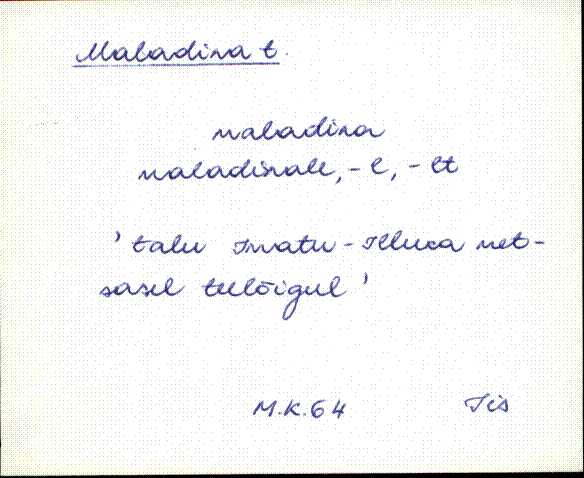 Maladina t.
maladina
maladinale, -l, -lt
' talu Imatu - Illuka met-
sasel teelõigul '
M.K. 64 Iis